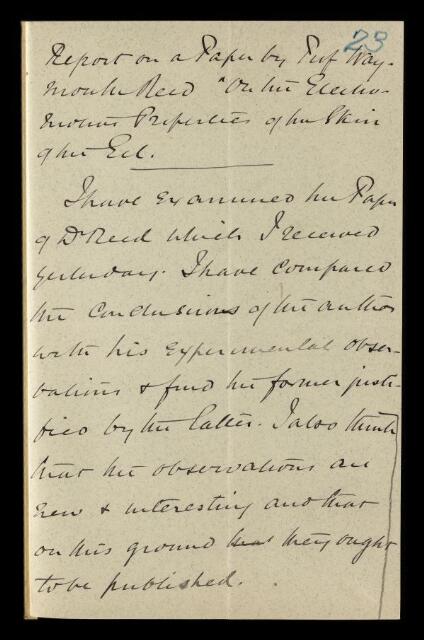 23
Report on a Paper by Prof Way-
mouth Reid "On the Electro-
motive Properties of the Skin
of the Eel.
I have examined the Paper
of Dr Reid which I received
yesterday. I have compared
the conclusions of the author
with his experimental obser-
vations & find the former justi-
fied by the latter. I also think
that the observations are
new & interesting and that
on this ground that they ought
to be published.